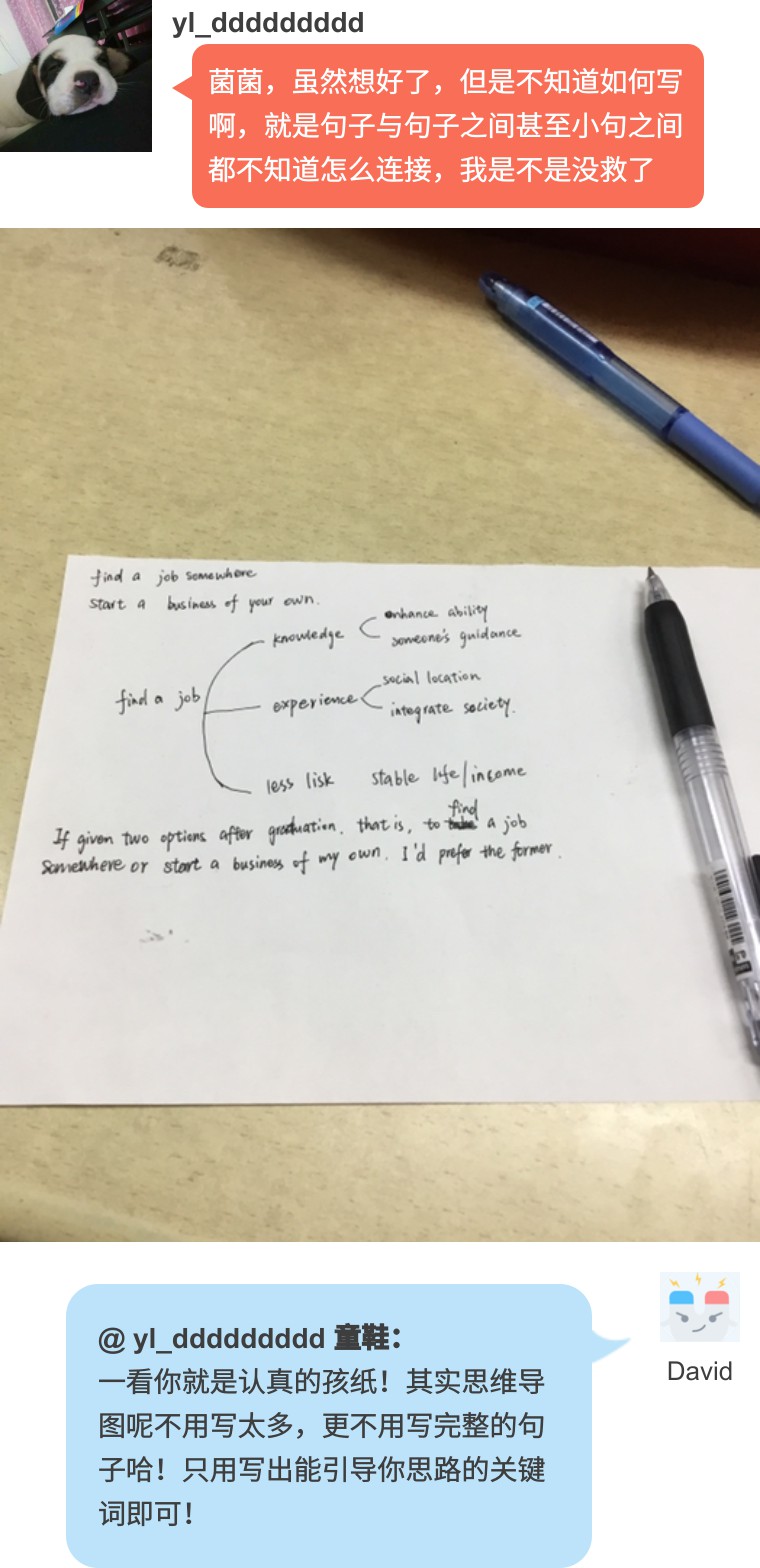 yl_ddddddddd
菌菌，虽然想好了，但是不知道如何写
啊，就是句子与句子之间甚至小句之间
都不知道怎么连接，我是不是没救了
find a job somewhere
start a business of your own.
find a job
knowledge
enhance ability
someone's guidance
experience
social location
integrate society.
less lisk stable life/income
find
If given two options after graduation. that is, to a job
Somewhere or start a business of my own. I'd prefer the former.
@ yl_ddddddddd 童鞋：
一看你就是认真的孩纸！其实思维导
图呢不用写太多，更不用写完整的句
子哈！只用写出能引导你思路的关键
词即可！
David